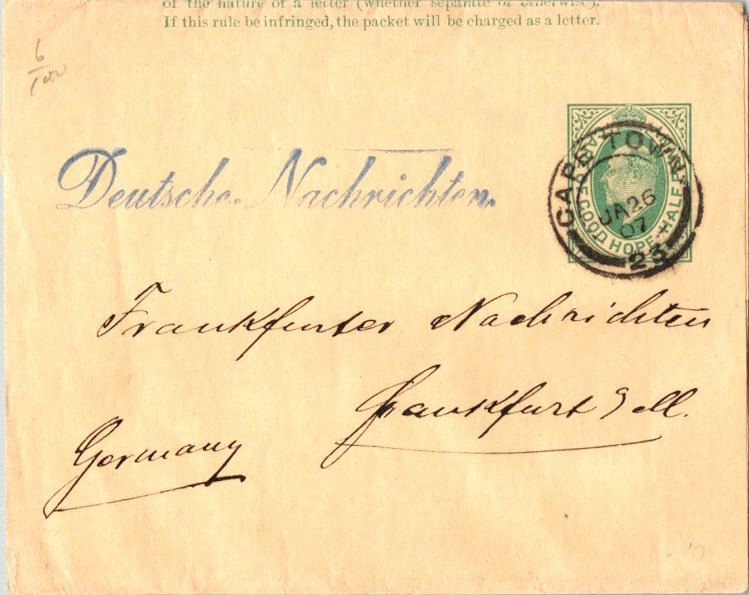 of the nature of a letter (whether separate or otherwise).
If this rule be infringed, the packet will be charged as a letter.
6
CAPE TOWN
JA 26
07
23
GOOD HOPE HALF
Deutsche Nachrichten.
Frankfurter Nachrichten
Frankfurt a M.
Germany